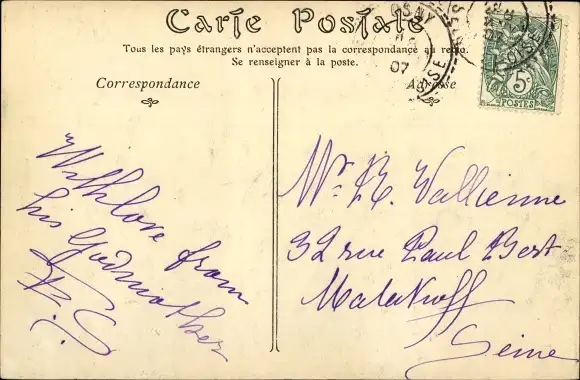 Carte Postale
Tous les pays étrangers n'acceptent pas la correspondance au recto.
Se renseigner à la poste.
Correspondance
Adresse
With love from
his Godmother
Mr. R. Vallienne
32 rue Paul Bert
Malakoff
Seine
OSNY
07
OISE
5c
POSTES